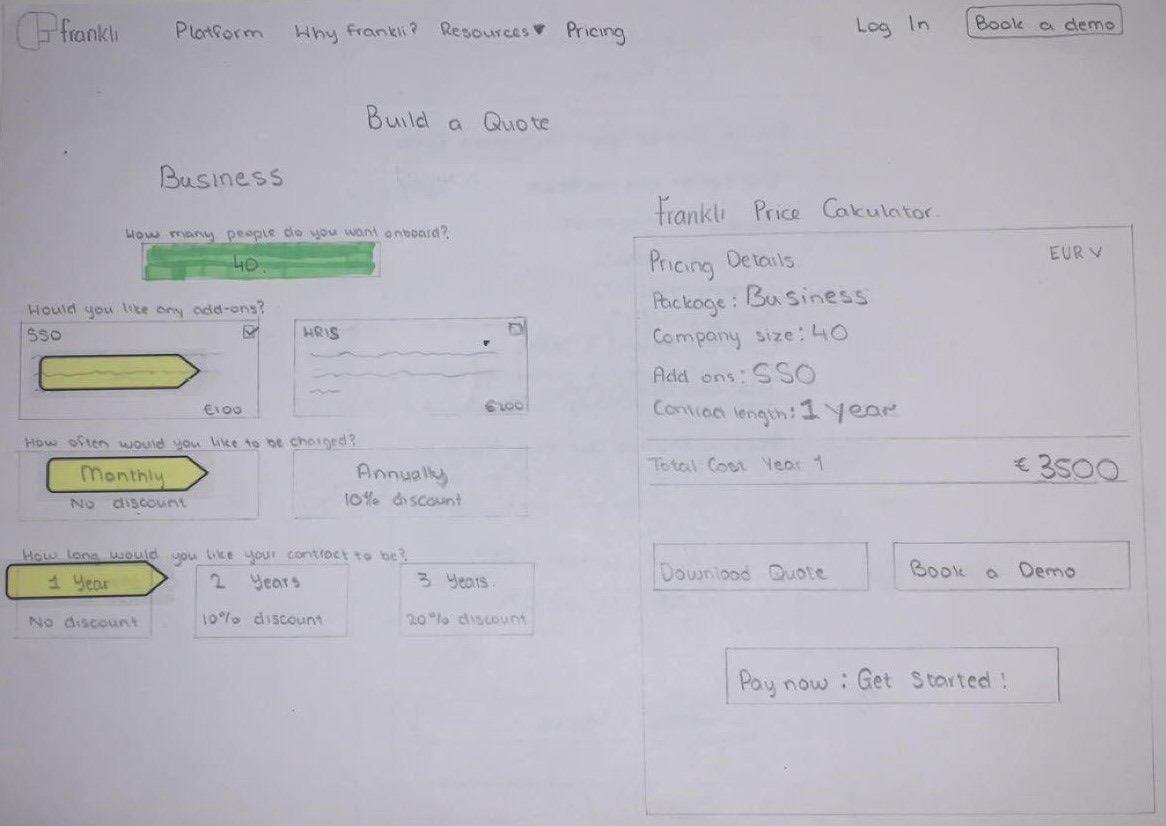 frankli Platform Why Frankli? Resources Pricing Log In Book a demo
Build a Quote
Business
How many people do you want onboard?
40.
Would you like any add-ons?
SSO
€100
HRIS
€200
How often would you like to be charged?
Monthly
No discount
Annually
10% discount
How long would you like your contract to be?
1 Year
No discount
2 Years
10% discount
3 Years.
20% discount
Frankli Price Calculator.
Pricing Details EUR V
Package: Business
Company size: 40
Add ons: SSO
Contract length: 1 year
Total Cost Year 1 € 3500
Download Quote
Book a Demo
Pay now : Get Started!